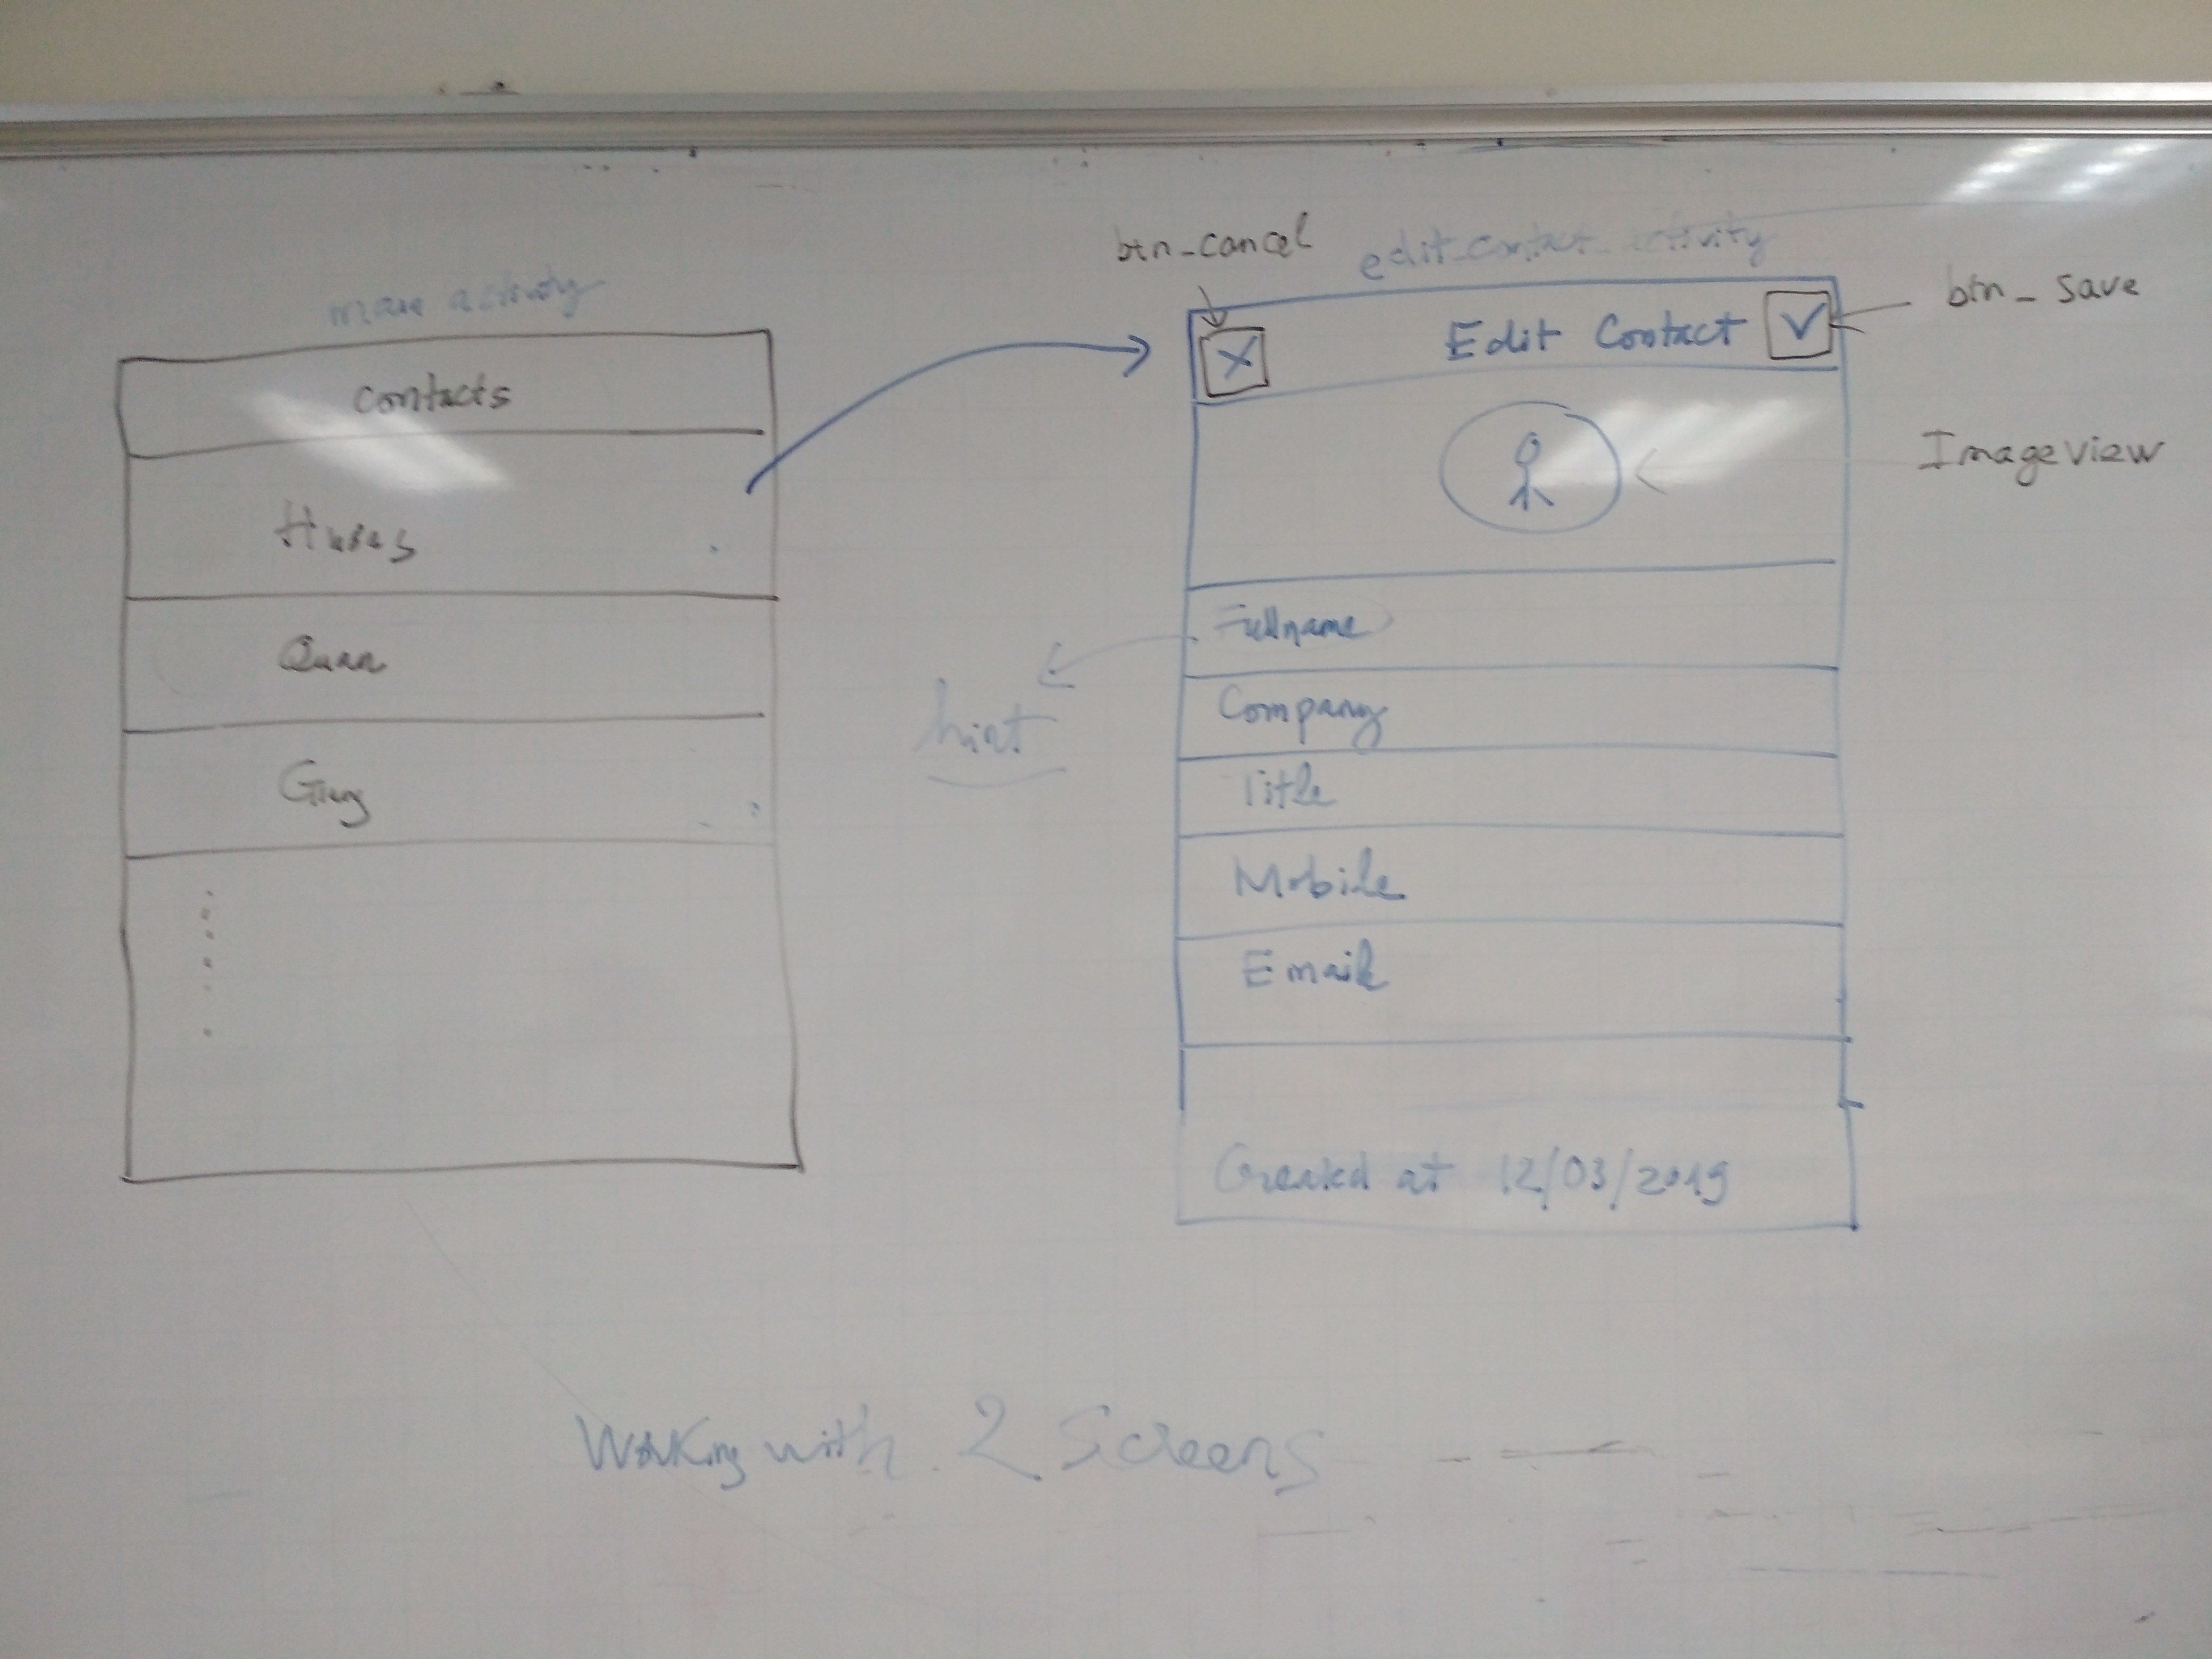 main activity
contacts
Quan
btn_cancel
edit_contact_activity
btn_save
X Edit Contact V
ImageView
Fullname
hint
Company
Title
Mobile
Email
Created at 12/03/2019
Working with 2 Screens